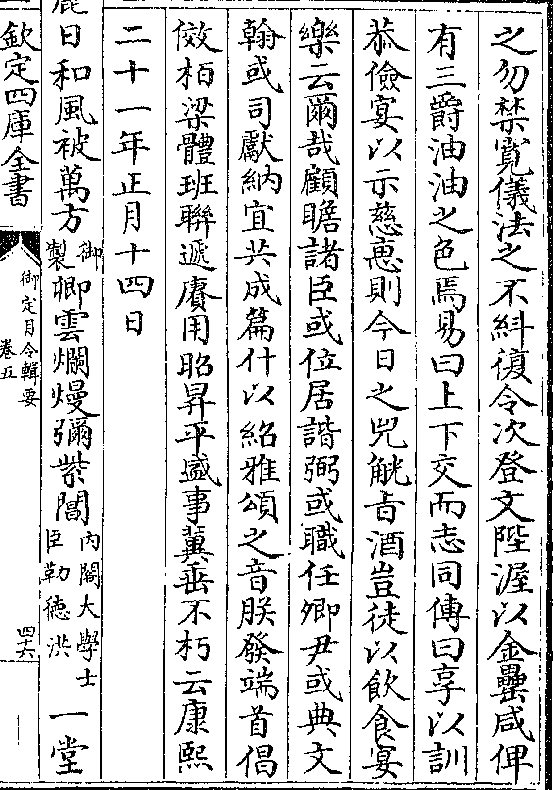 之勿禁寬儀法之不糾復令次登文陛渥以金罍咸俾
有三爵油油之色焉易曰上下交而志同傳曰享以訓
恭儉宴以示慈惠則今日之兕觥旨酒豈徒以飲食宴
樂云爾哉顧瞻諸臣或位居諧弼或職任卿尹或典文
翰或司獻納宜共成篇什以紹雅頌之音朕發端首倡
倣柏梁體班聯遞賡用昭昇平盛事冀垂不朽云康熙
二十一年正月十四日
麗日和風被萬方御製卿雲爛熳彌紫閶內閣大學士臣勒德洪一堂
欽定四庫全書
御定月令輯要
卷五
四十六